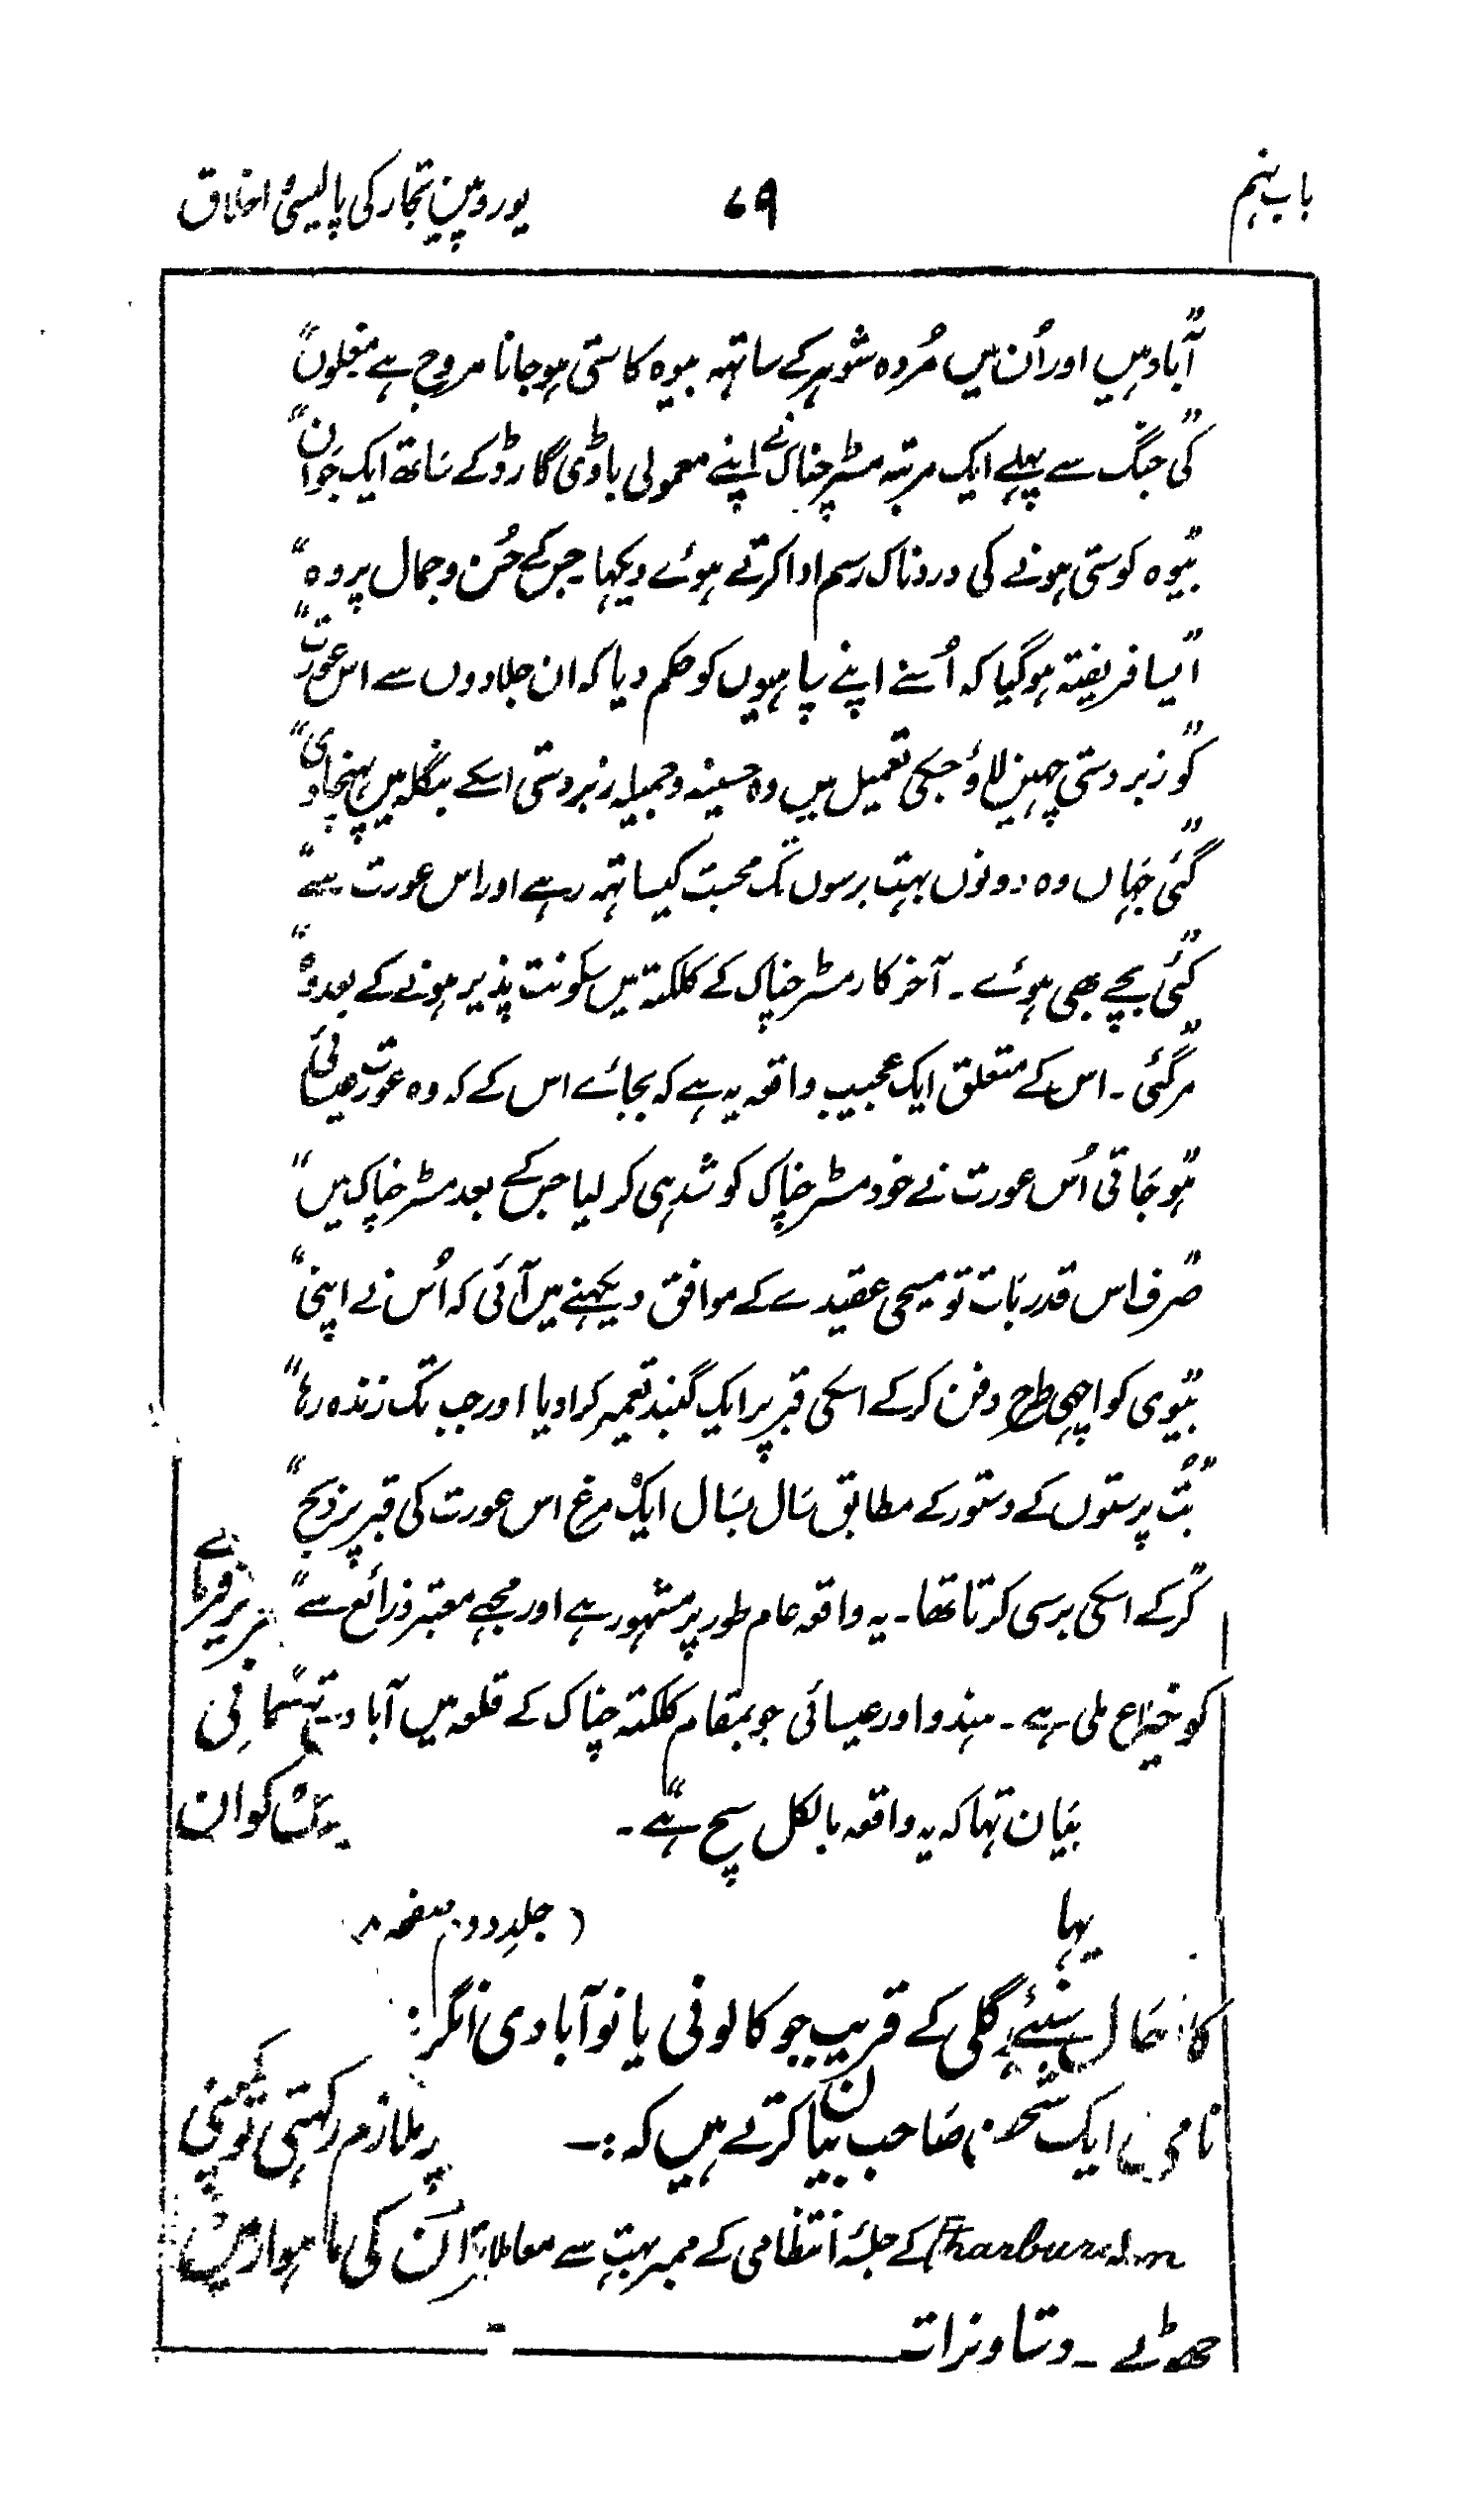 باب نہم ۷۹ یوروپین تجار کی پالیسی و اخلاق
"آباد ہیں اور اُن میں مُردہ شوہر کے ساتہہ بیوہ کا ستی ہوجانا مروج ہے مغلوں"
"کی جنگ سے پہلے ایک مرتبہ مسٹر چناک نے اپنے معمولی باڈی گارڈ کے ساتھ ایک جوان"
"بیوہ کو ستی ہونے کی دردناک رسم ادا کرتے ہوئے دیکہا۔ جس کے حُسن و جمال پر وہ"
"ایسا فریفتہ ہوگیا کہ اُسنے اپنے سپاہیوں کو حکم دیا کہ ان جلادوں سے اس عورت"
"کو زبردستی چہین لاؤ جسکی تعمیل میں وہ حسینہ و جمیلہ زبردستی اسکے بنگلہ میں پہنچادی"
"گئی جہاں وہ دونوں بہت برسوں تک محبت کیساتہہ رہے اور اس عورت سے"
"کئی بچے بھی ہوئے۔ آخر کار مسٹر چناک کے کلکتہ میں سکونت پذیر ہونے کے بعد وہ"
"مرگئی۔ اس کے متعلق ایک عجیب واقعہ یہ ہے کہ بجائے اس کے کہ وہ عورت عیسائی
"ہوجاتی اُس عورت نے خود مسٹر چناک کو شدہی کرلیا جس کے بعد مسٹر چناک میں"
"صرف اس قدر بات تو مسیحی عقیدے کے موافق دیکہنے میں آئی کہ اُس نے اپنی"
"بیوی کو اچہی طرح دفن کرکے اسکی قبر پر ایک گنبد تعمیر کرادیا اور جب تک زندہ رہا"
"بُت پرستوں کے دستور کے مطابق سال بسال ایک مرغ اس عورت کی قبر پر ذبح"
"کرکے اسکی برسی کرتا تھا۔ یہ واقعہ عام طور پر مشہور ہے اور مجھے معتبر ذرائع سے"
کو ملی ہے۔ ہندو اور عیسائی جو بمقام کلکتہ چناک کے قلعہ میں آباد
بیان تہا کہ یہ واقعہ بالکل سچ ہے"۔ کو ان
یہا (جلد دوم صفحہ
کا حال سنیے ہگلی کے قریب جو کالونی یا نو آبادی انگر
نامی ایک صاحب بیان کرتے ہیں کہ:۔ پر ملازم رکہتی تو کمپنی
کے جلسۂ انتظامی کے ممبر بہت سے ان کی ماہوار میں
جھوٹے۔ دستاویزات